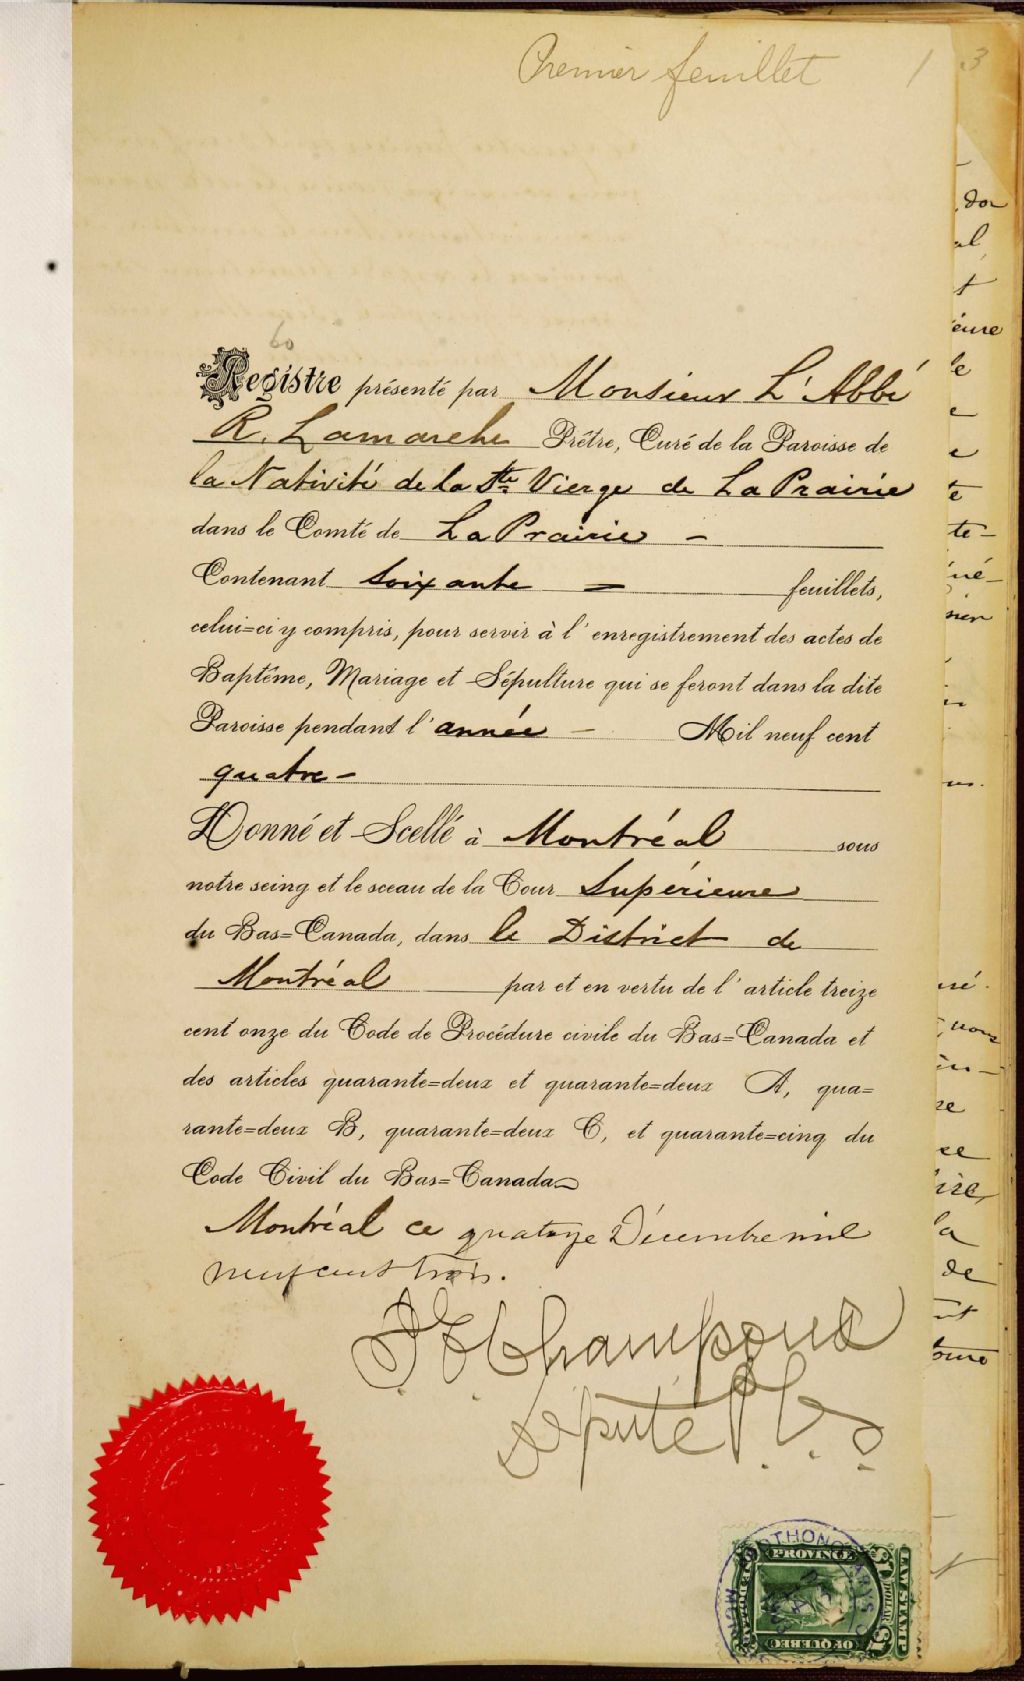 Premier feuillet 1 3
60
Registre présenté par Monsieur L'Abbé
R. Lamarche Prêtre, Curé de la Paroisse de
la Nativité de la Ste Vierge de La Prairie
dans le Comté de La Prairie -
Contenant Soixante = feuillets,
celui=ci y compris, pour servir à l'enregistrement des actes de
Baptême, Mariage et Sépulture qui se feront dans la dite
Paroisse pendant l'année - Mil neuf cent
quatre -
Donné et Scellé à Montréal sous
notre seing et le sceau de la Cour Supérieure
du Bas=Canada, dans le District de
Montréal par et en vertu de l'article treize
cent onze du Code de Procédure civile du Bas=Canada et
des articles quarante=deux et quarante=deux A, qua=
rante=deux B, quarante=deux C, et quarante=cinq du
Code Civil du Bas=Canada
Montréal ce quatorze Décembre mil
neuf cent trois.
Champoux
Député P.
PROVINCE
OF QUEBEC
LAW STAMP
$1 DOLLAR $1